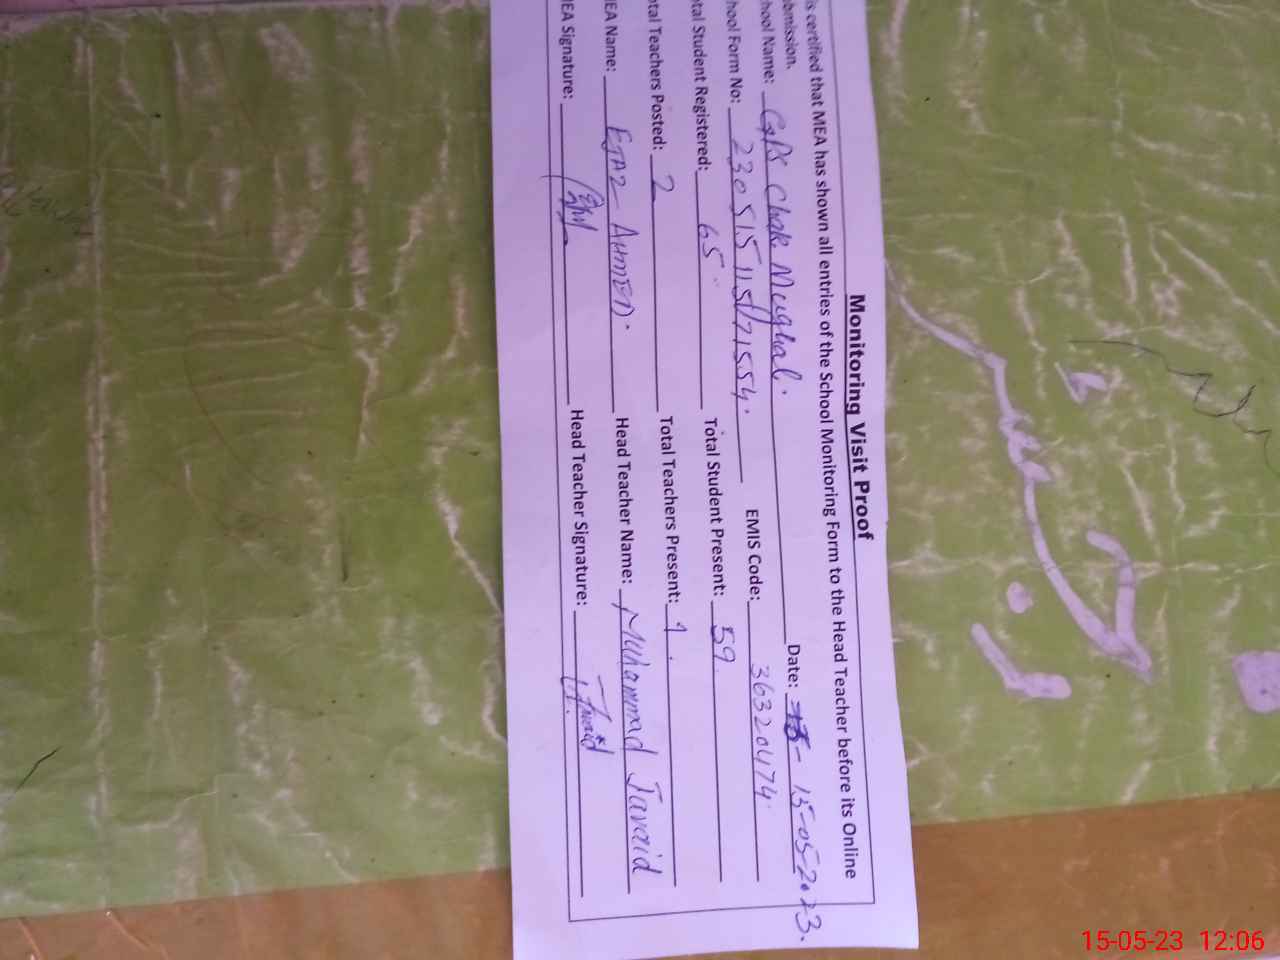 Monitoring Visit Proof
is certified that MEA has shown all entries of the School Monitoring Form to the Head Teacher before its Online
bmission.
hool Name: GPS Chak Mughal. Date: 15-05-2023.
hool Form No: EMIS Code: 36320474
tal Student Registered: 65 Total Student Present: 59
otal Teachers Posted: 2 Total Teachers Present: 1
EA Name: EJAZ AHMED. Head Teacher Name: Muhammad Javaid
IEA Signature: Head Teacher Signature: Javaid
15-05-23 12:06